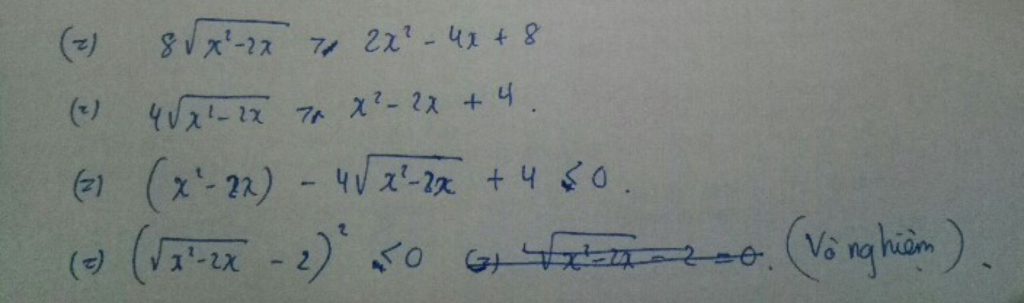 (=) 8√(x²-2x) ≥ 2x² - 4x + 8
(=) 4√(x²-2x) ≥ x² - 2x + 4.
(=) (x²-2x) - 4√(x²-2x) + 4 ≤ 0.
(=) (√(x²-2x) - 2)² ≤ 0 (=) √(x²-2x) - 2 = 0. (Vô nghiệm).